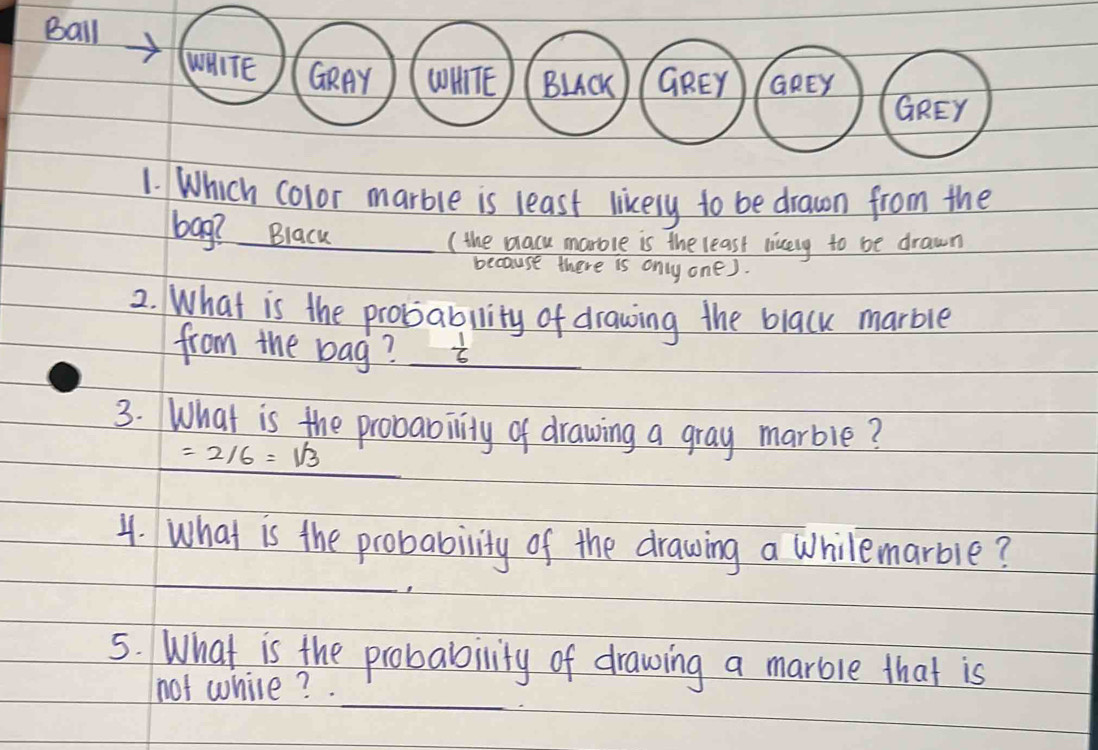 Ball → WHITE GRAY WHITE BLACK GREY GREY GREY
1. Which color marble is least likely to be drawn from the
bag? Black (the black marble is the least likely to be drawn
because there is only one).
2. What is the probability of drawing the black marble
from the bag? 1/6
3. What is the probability of drawing a gray marble?
= 2/6 = 1/3
4. What is the probability of the drawing a While marble?
.
5. What is the probability of drawing a marble that is
not while? .